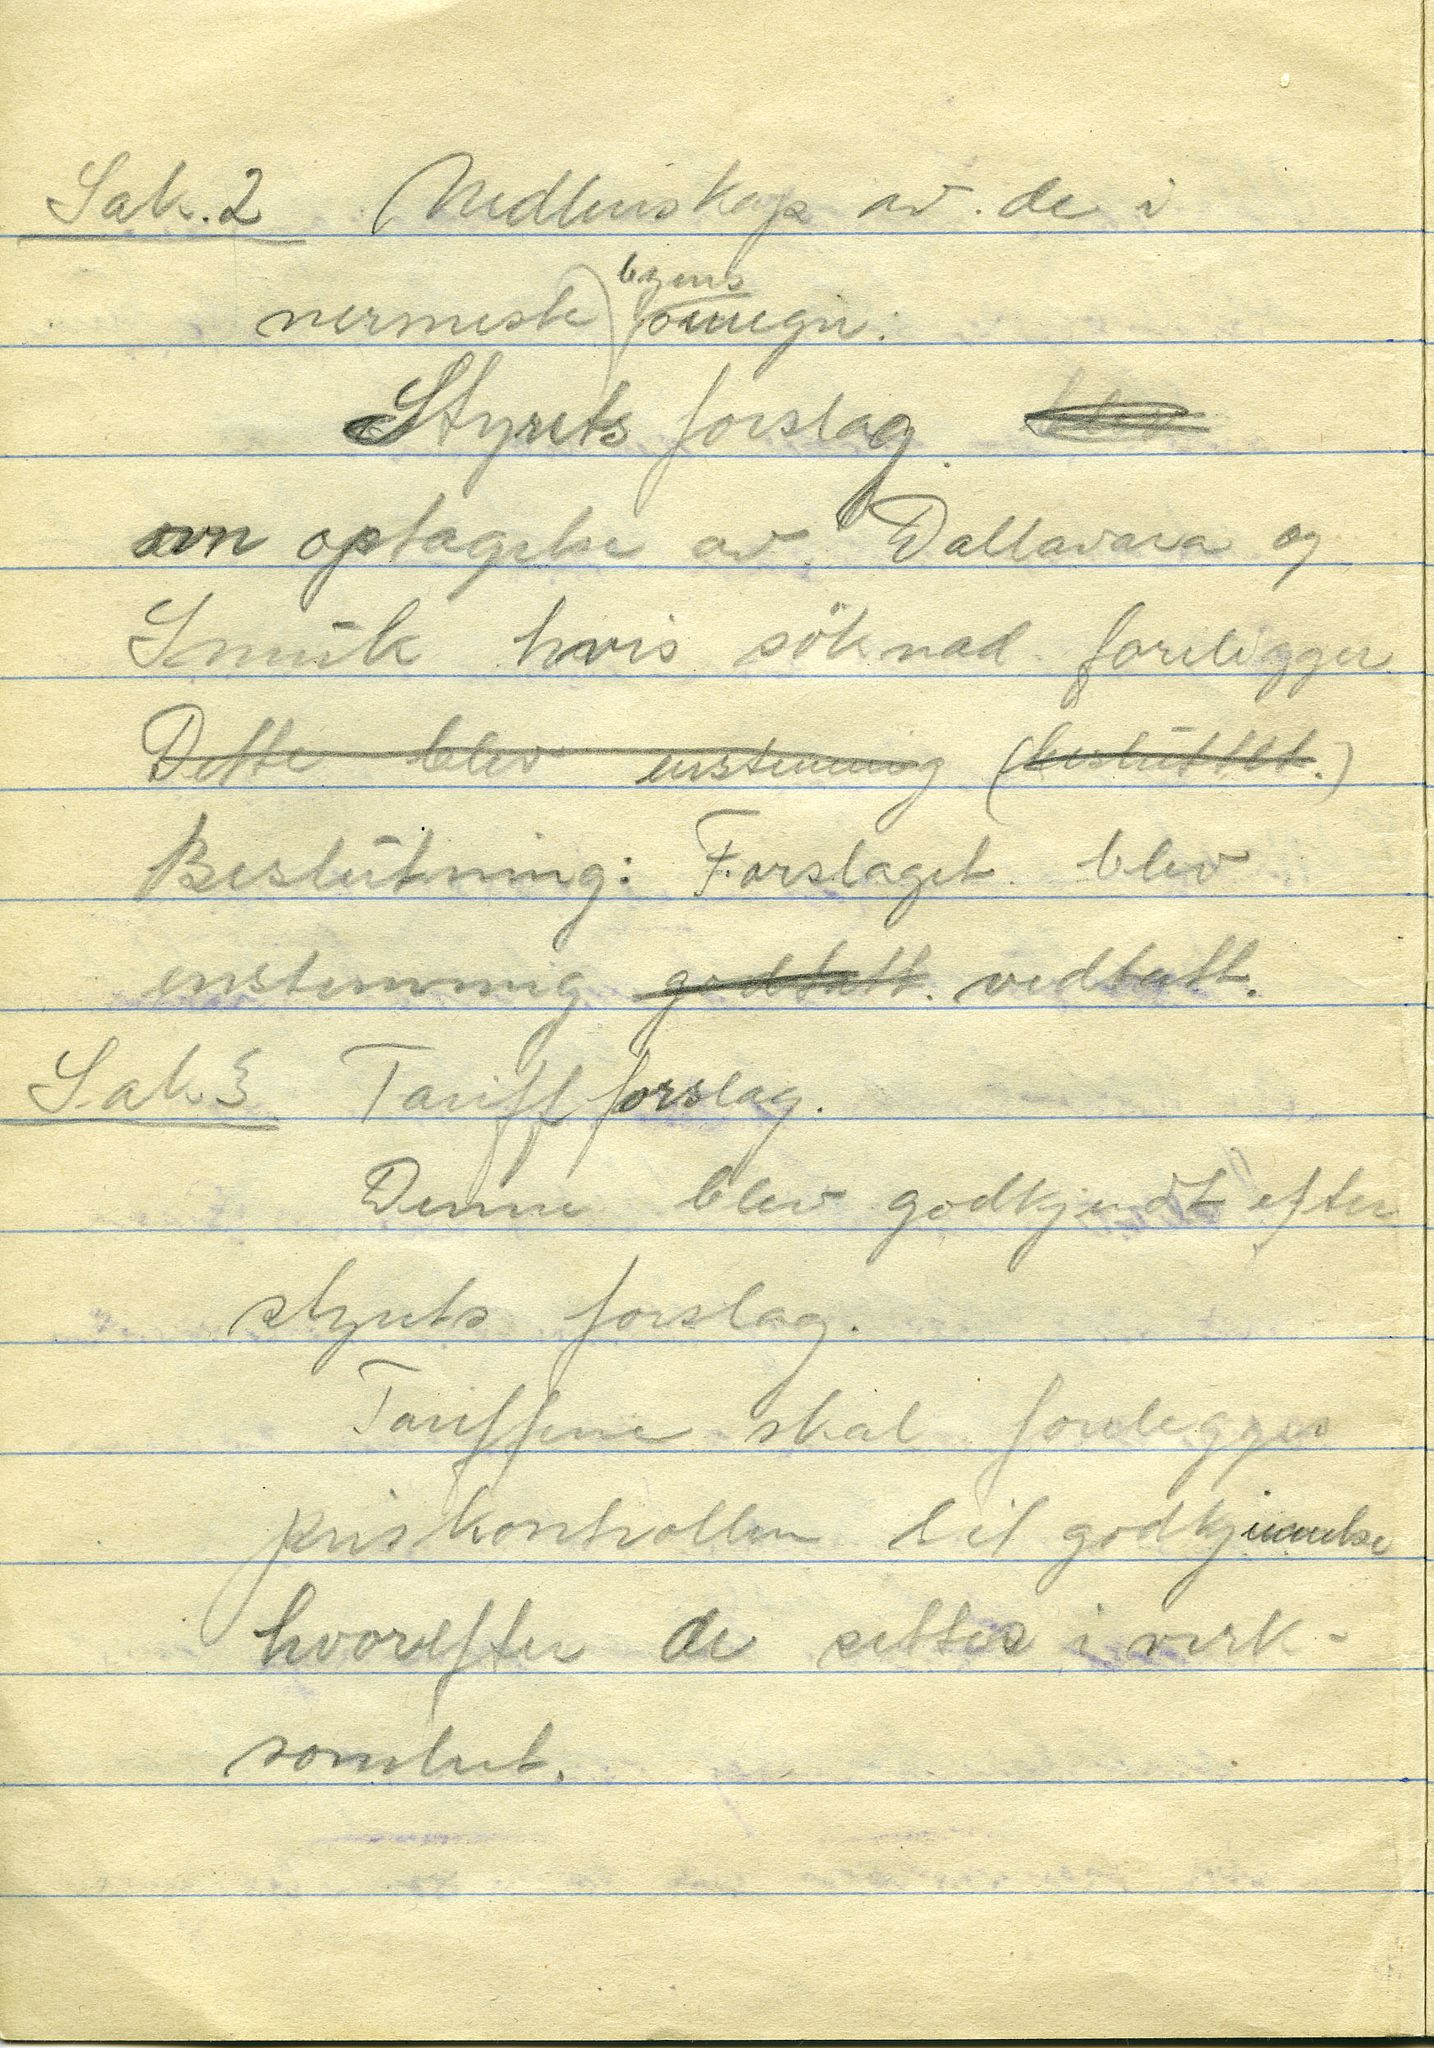 Sak. 2 Medlemskap av de i
nermeste byens omegn.
Styrets forslag blev
om optagelse av Dallavara og
Smuk hvis söknad foreligger
Dette blev enstemmig (besluttet.)
Beslutning: Forslaget blev
enstemmig godtatt. vedtatt.
Sak. 3 Tariff forslag.
Denne blev godkjendt efter
styrets forslag.
Tariffene skal forelegges
priskontrollen til godkjennelse
hvorefter de settes i verk-
somhet.